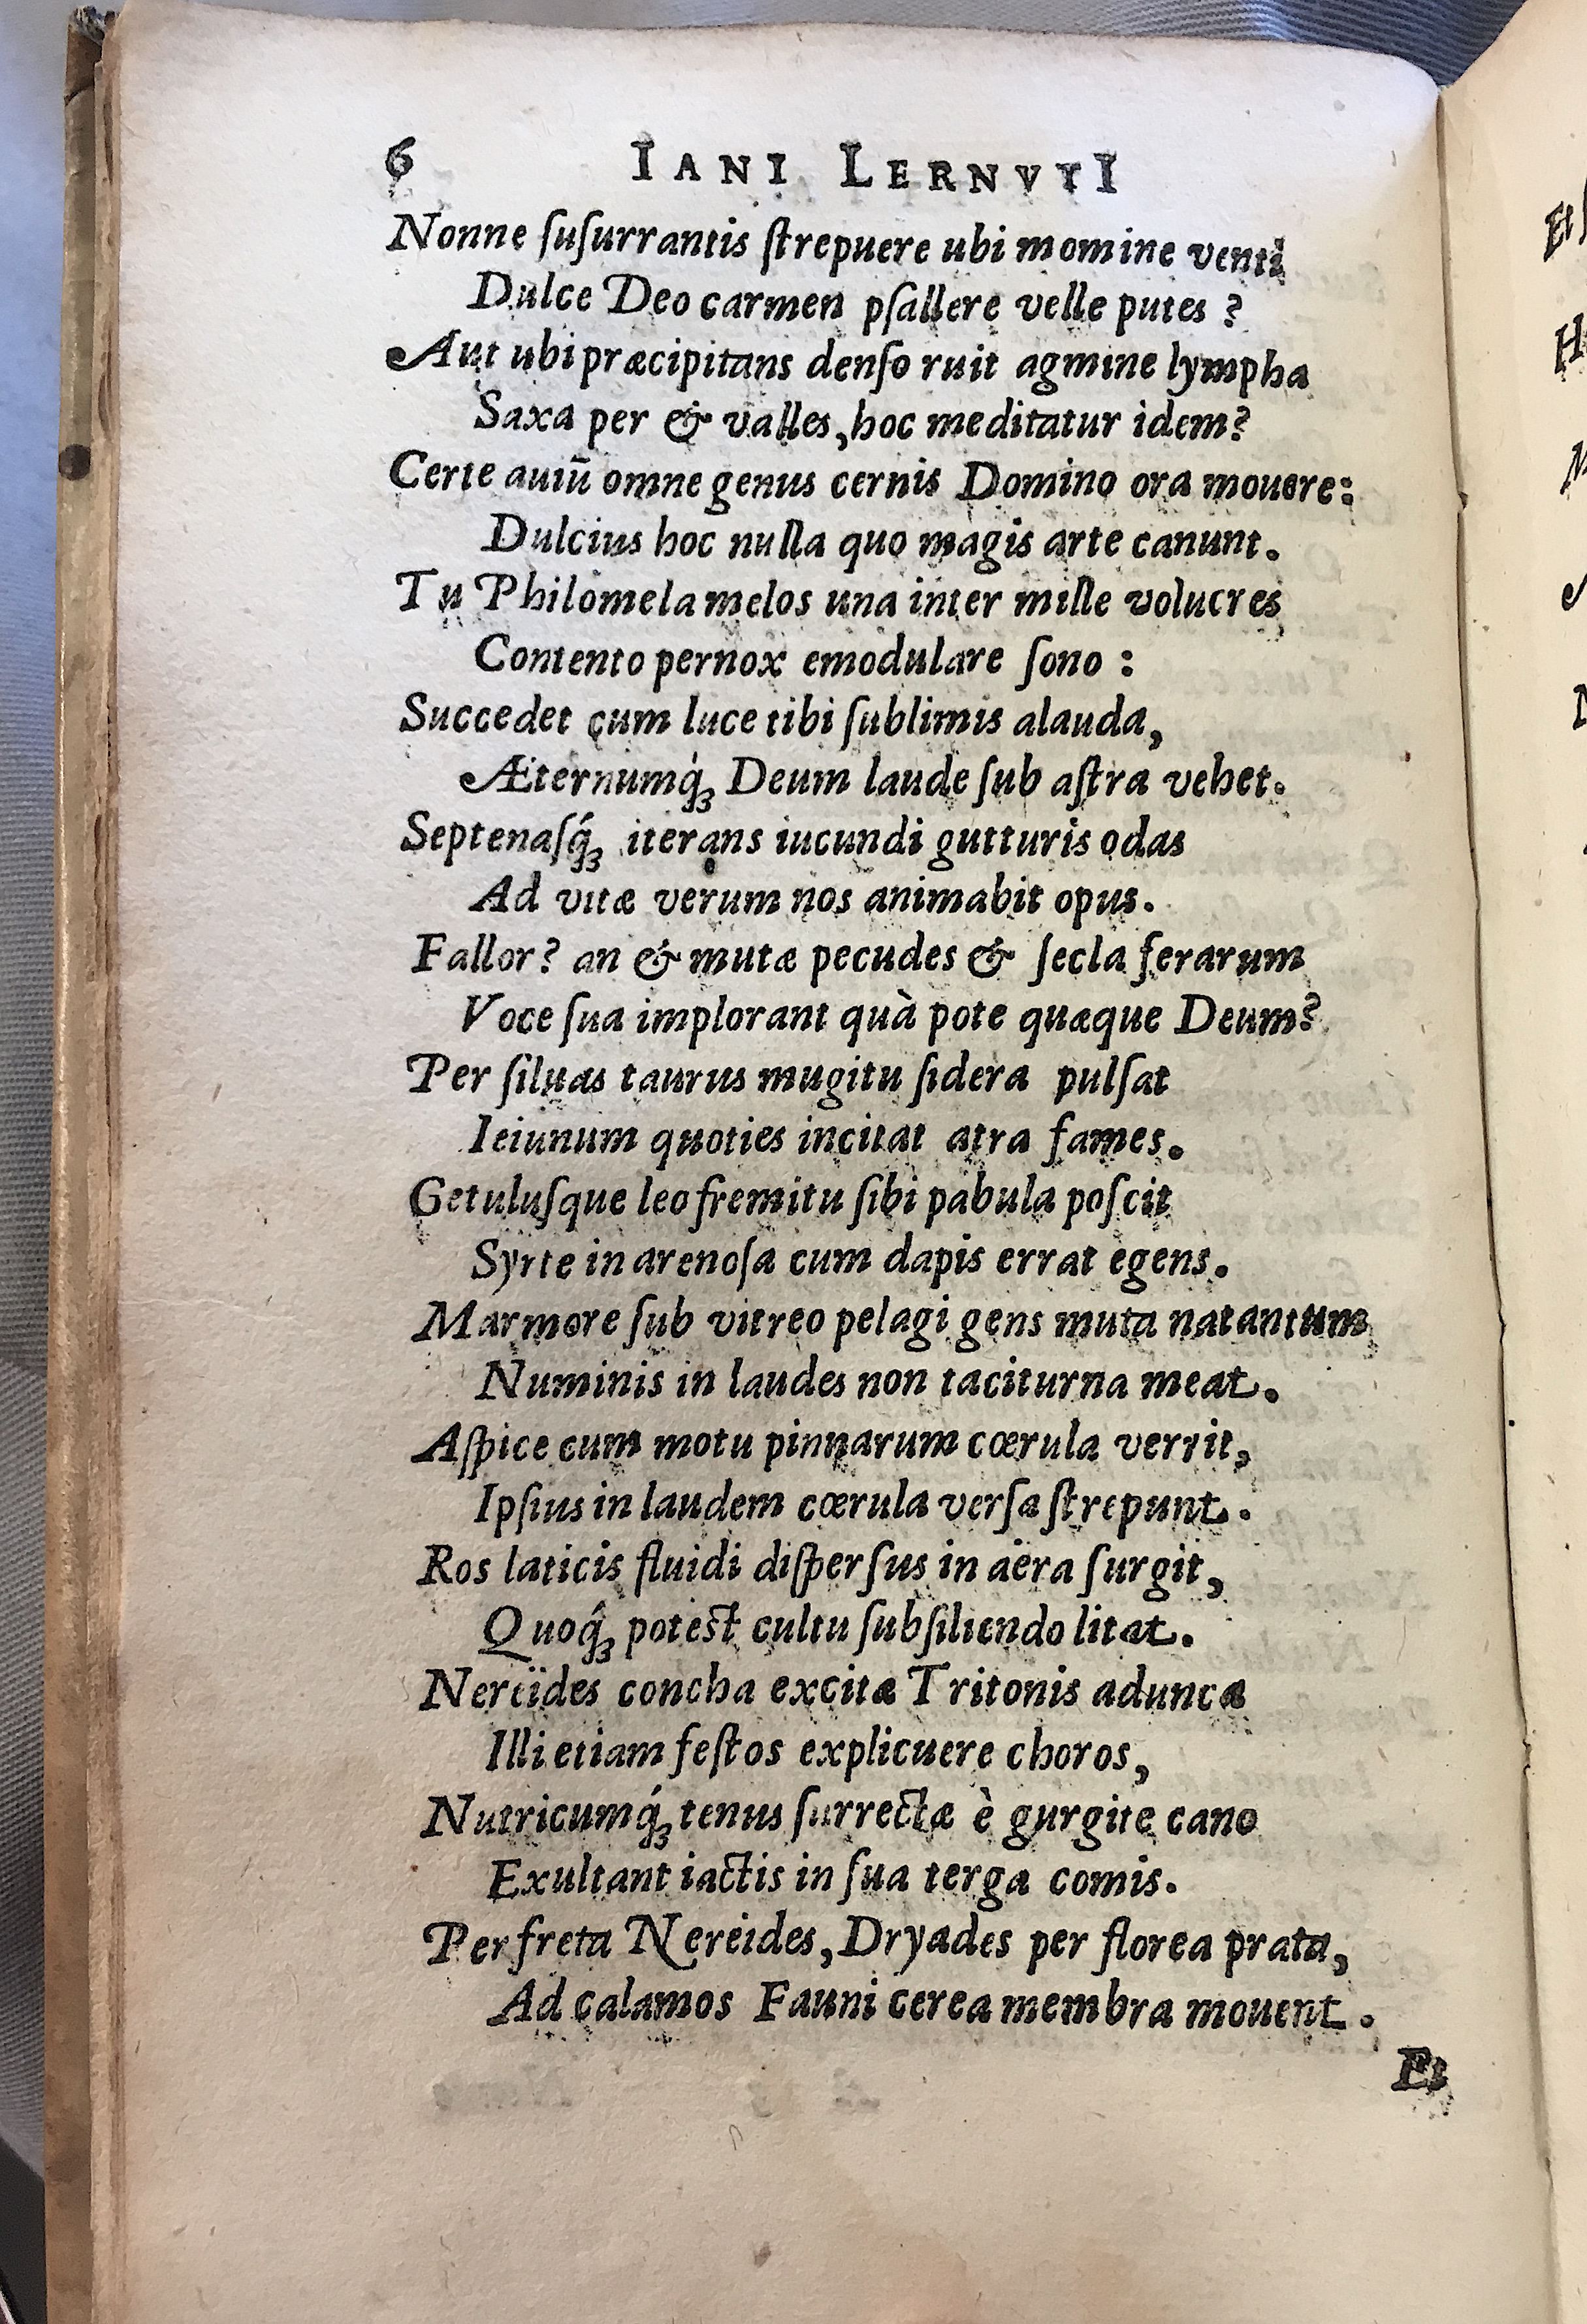 6 IANI LERNVTI
Nonne ſuſurrantis ſtrepuere ubi momine venti
Dulce Deo carmen pſallere velle putes ?
Aut ubi præcipitans denſo ruit agmine lympha
Saxa per & valles, hoc meditatur idem?
Certe auiū omne genus cernis Domino ora mouere:
Dulcius hoc nulla quo magis arte canunt.
Tu Philomela melos una inter mille volucres
Contento pernox emodulare ſono :
Succedet cum luce tibi ſublimis alauda,
Æternumq́ꝫ Deum laude ſub aſtra vehet.
Septenaſq́ꝫ iterans iucundi gutturis odas
Ad vitæ verum nos animabit opus.
Fallor? an & mutæ pecudes & ſecla ferarum
Voce ſua implorant quà pote quæque Deum?
Per ſiluas taurus mugitu ſidera pulſat
Ieiunum quoties incitat atra fames.
Getuluſque leo fremitu ſibi pabula poſcit
Syrte in arenoſa cum dapis errat egens.
Marmore ſub vitreo pelagi gens muta natantum
Numinis in laudes non taciturna meat.
Aſpice cum motu pinnarum cœrula verrit,
Ipſius in laudem cœrula verſa ſtrepunt.
Ros laticis fluidi diſperſus in aëra ſurgit,
Quoq́ꝫ potest cultu ſubſiliendo litat.
Nereïdes concha excitæ Tritonis aduncæ
Illi etiam feſtos explicuere choros,
Nutricumq́ꝫ tenus ſurrectæ è gurgite cano
Exultant iactis in ſua terga comis.
Per freta Nereides, Dryades per florea prata,
Ad calamos Fauni cerea membra mouent.
Et